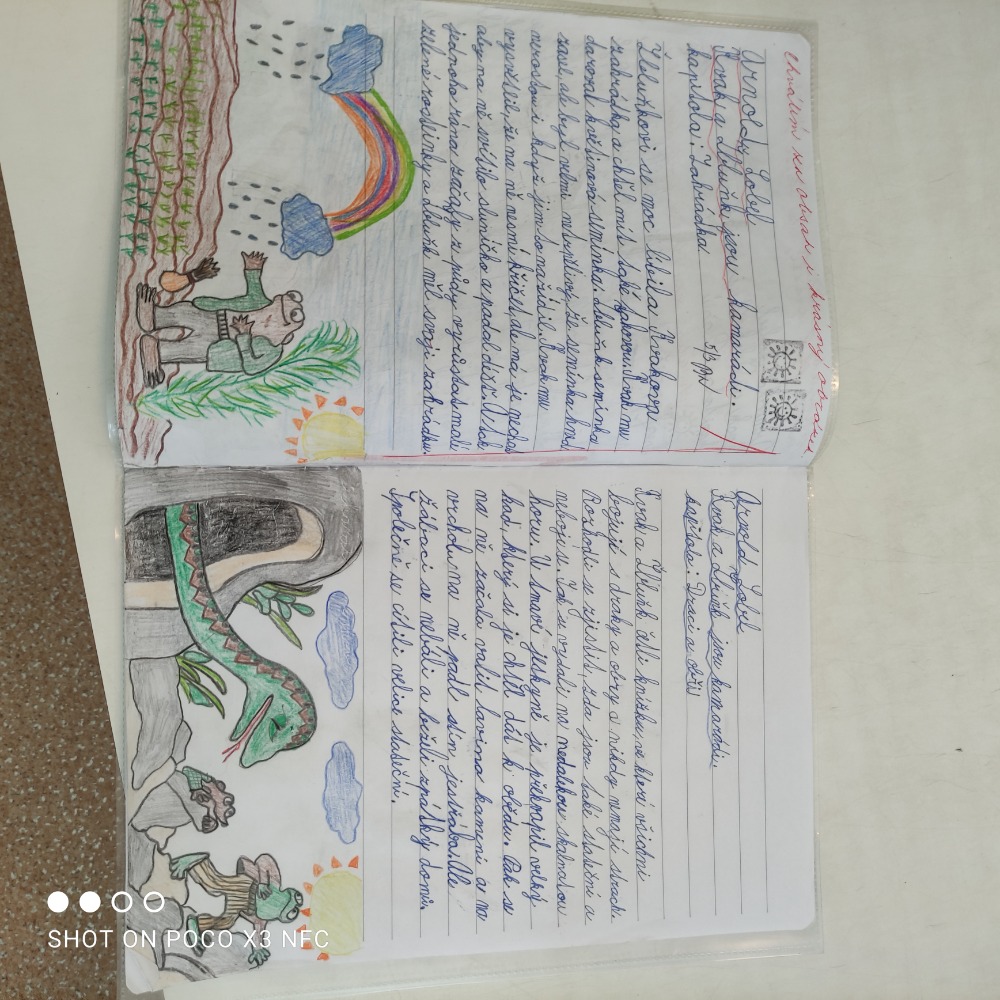 Chválím za obsah i krásný obrázek
Arnoldy Lobel
Kvak a Žbluňk jsou kamarádi.
kapitola: Zahrádka
Žbluňkovi se moc líbila Kvakova
zahrádka a chtěl mít také takovou. Kvak mu
daroval květinová semínka. Žbluňk semínka
zasel, ale byl velmi netrpělivý, že semínka hned
nerostou i když jim to nařídil. Kvak mu
vysvětlil, že na ně nesmí křičet, ale má je nechat
aby na ně svítilo sluníčko a padal déšť. A tak
jednoho rána začaly z půdy vyrůstat malé
zelené rostlinky a Žbluňk měl svoji zahrádku.
Arnold Lobel
Kvak a Žbluňk jsou kamarádi.
kapitola: Draci a obři
Kvak a Žbluňk četli knížku, ve které všichni
bojují s draky a obry a nikdy nemají strach.
Rozhodli se zjistit, zda jsou také stateční a
nebojí se. Tak se vydali na nedalekou skalnatou
horu. U tmavé jeskyně je překvapil velký
had, který si je chtěl dát k obědu. Pak se
na ně začala valit lavina kamení a na
vrcholu na ně padl stín jestřába. Ale
žabáci se nebáli a běželi zpátky domů.
Společně se cítili velice stateční.
SHOT ON POCO X3 NFC